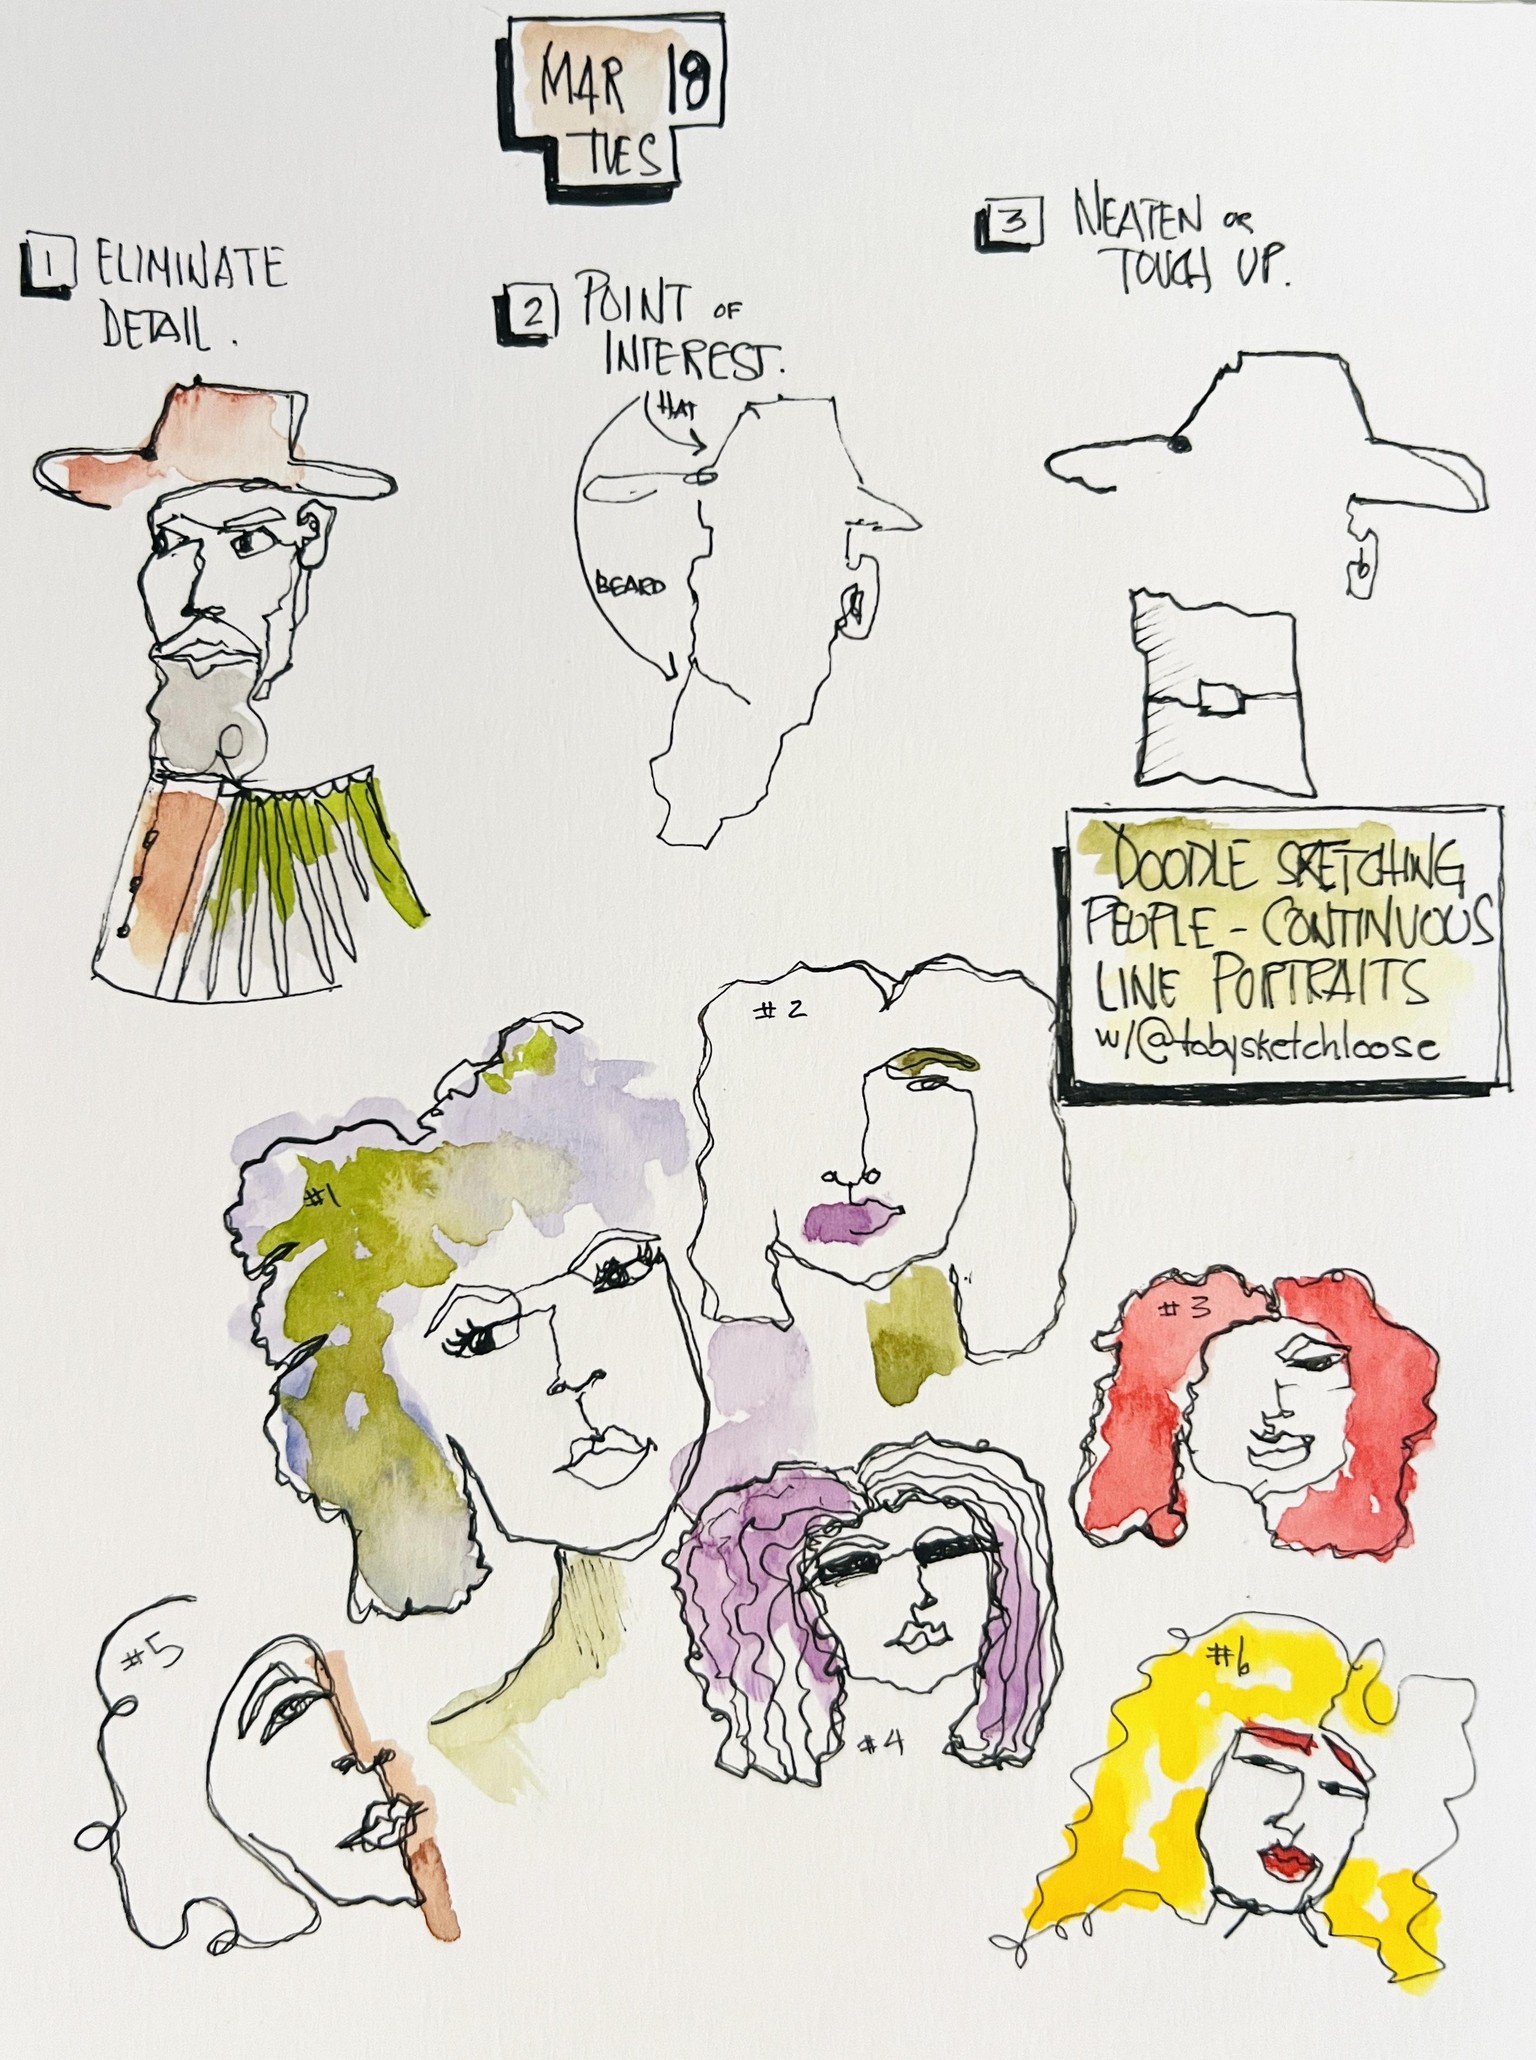 MAR 18
TUES
1 ELIMINATE
DETAIL.
2 POINT OF
INTEREST.
HAT
BEARD
3 NEATEN OR
TOUCH UP.
DOODLE SKETCHING
PEOPLE - CONTINUOUS
LINE PORTRAITS
w/@tobysketchloose
#1
#2
#3
#4
#5
#6